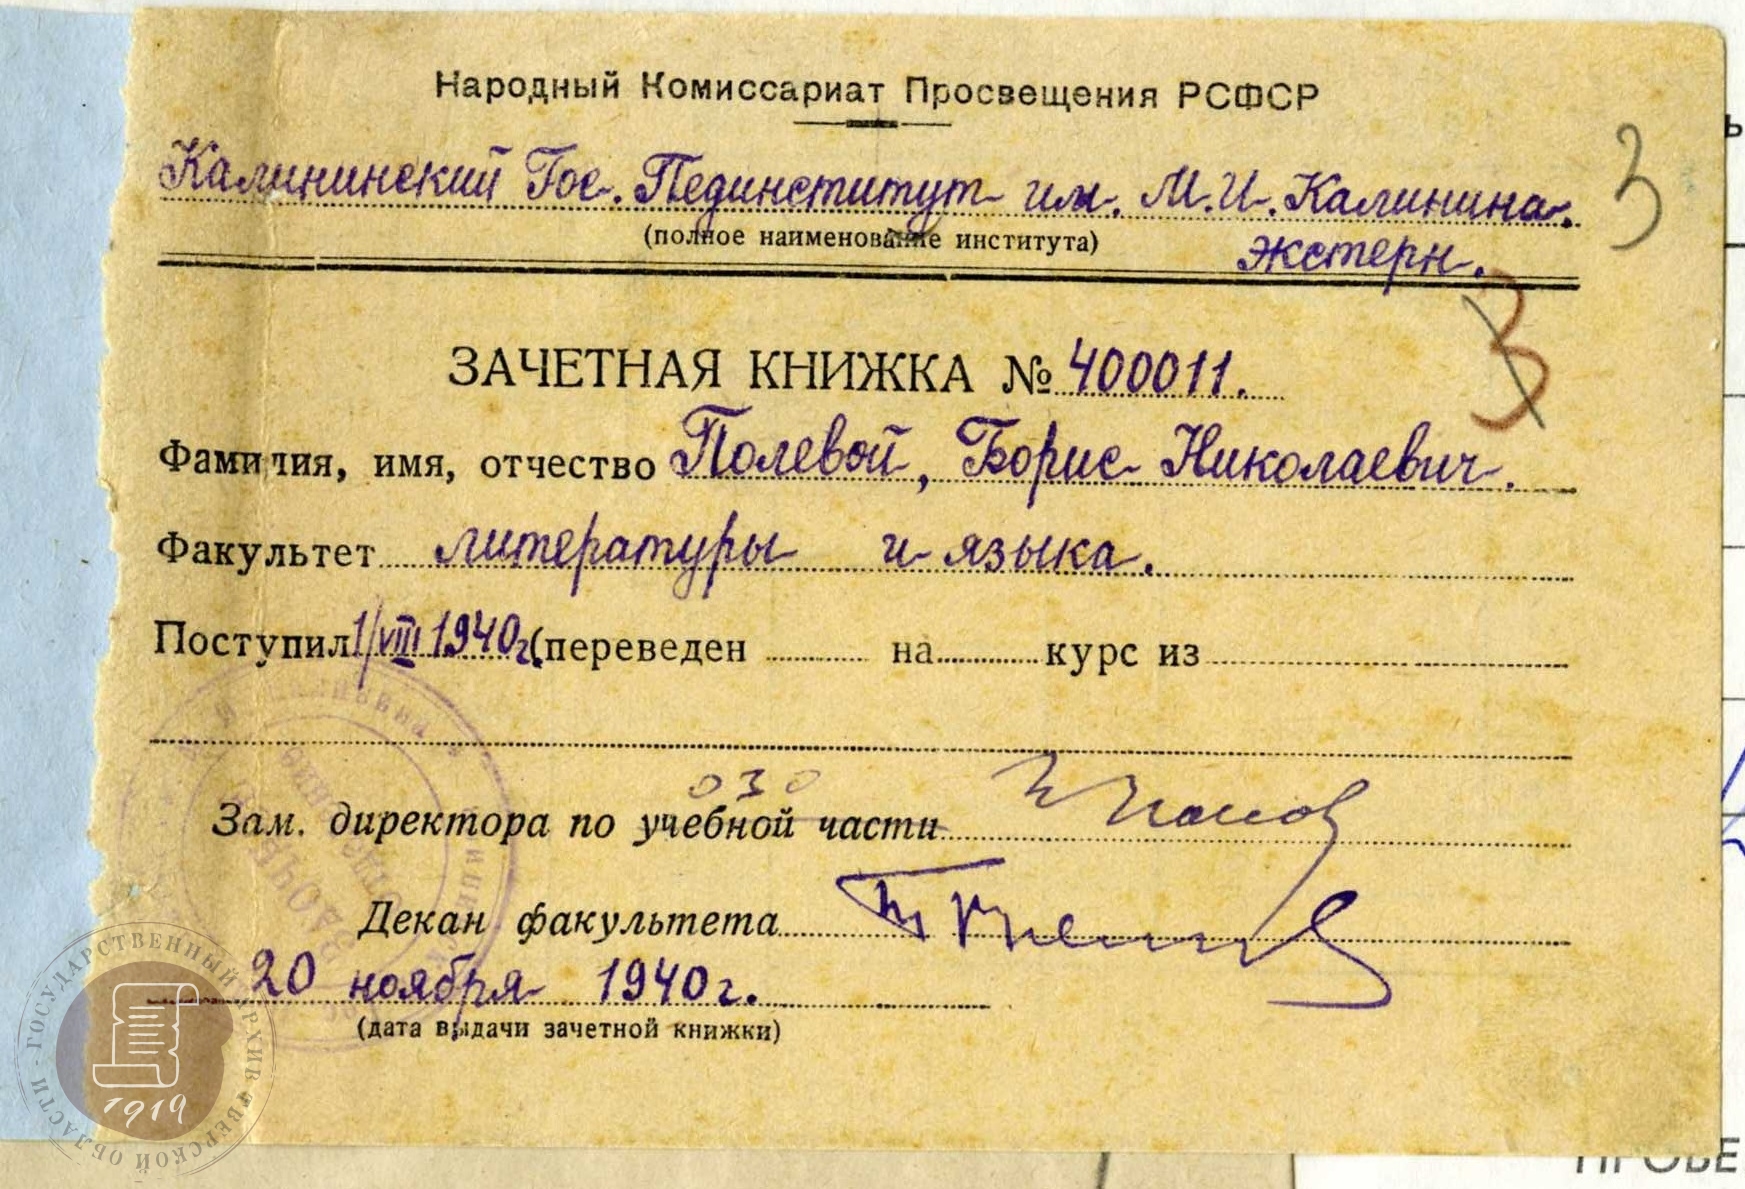 Народный Комиссариат Просвещения РСФСР
Калининский Гос. Пединститут им. М.И. Калинина.
3
(полное наименование института)
экстерн.
3
ЗАЧЕТНАЯ КНИЖКА № 400011.
Фамилия, имя, отчество Полевой, Борис Николаевич.
Факультет литературы и языка.
Поступил 1/VIII 1940г. (переведен на курс из
ОЗО
Зам. директора по учебной части
Декан факультета
20 ноября 1940 г.
(дата выдачи зачетной книжки)
ГОСУДАРСТВЕННЫЙ АРХИВ ТВЕРСКОЙ ОБЛАСТИ
1919